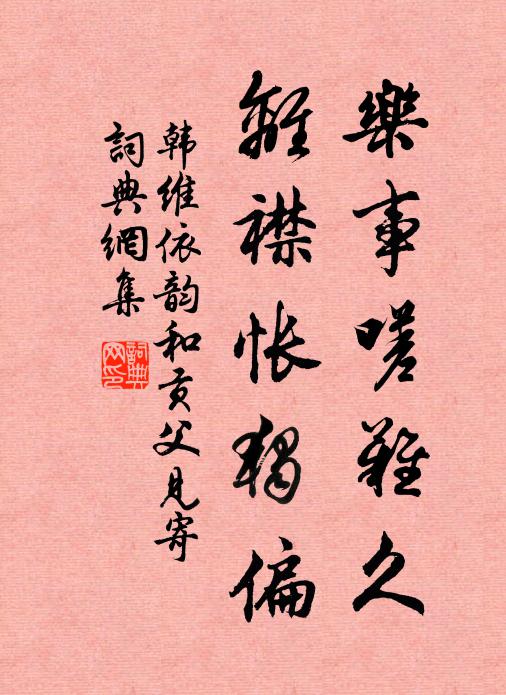 樂事嗟難久
離襟悵獨偏
韩維依韵和贡父見寄
詞典網集
詞典网印